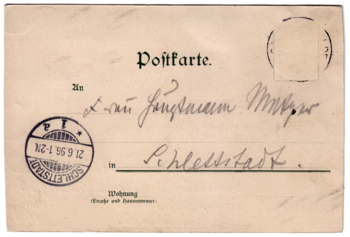 Postkarte.
An
Frau Hauptmann Metzer
in Schlettstadt.
Wohnung
(Straße und Hausnummer)
SCHLETTSTADT
21.6.96.1-2N.
* 1 a